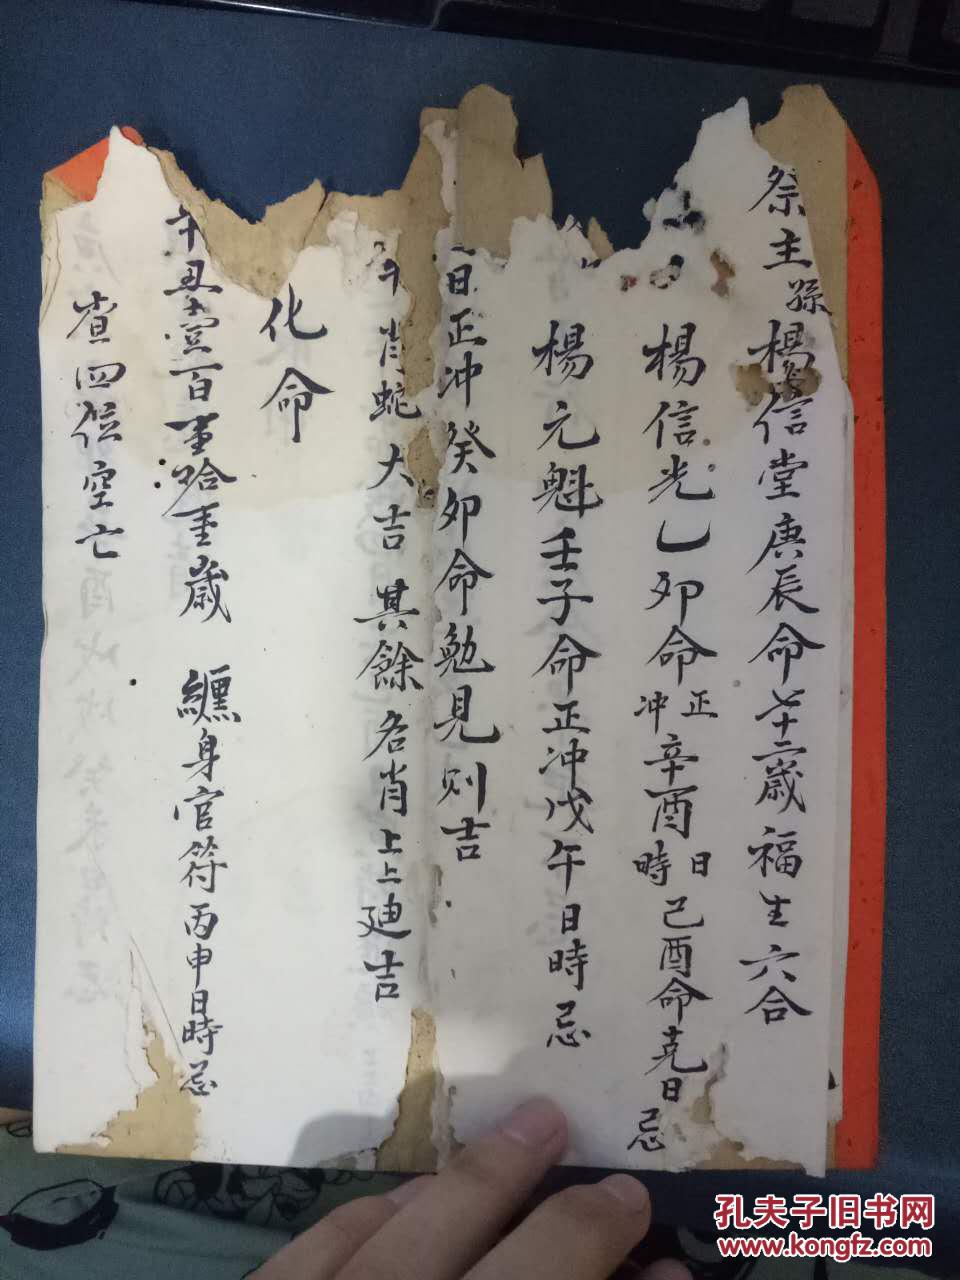 祭主孫楊信堂庚辰命七十二歲福生六合
楊信光乙卯命正冲辛酉日時己酉命克日忌
楊元魁壬子命正冲戊午日時忌
日正冲癸卯命勉見则吉
肖蛇大吉其餘名肖上上廸吉
化命
丑壹百重拾重歲 纏身官符丙申日時忌
查四位空亡
孔夫子旧书网
www.kongfz.com